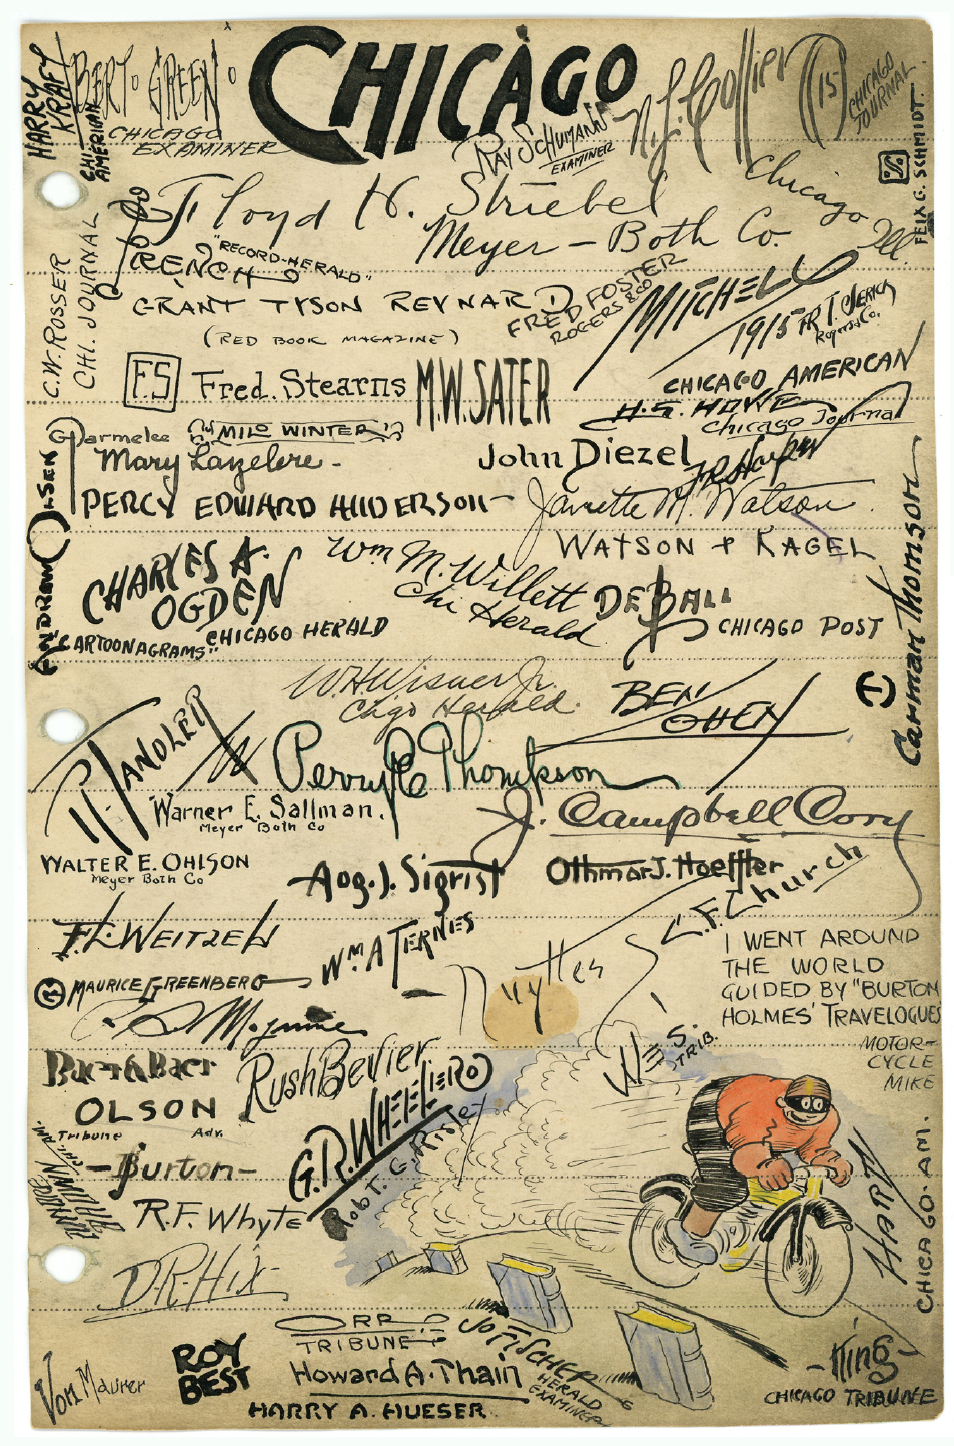 CHICAGO
HARRY KRAFT
CHI AMERICAN
BERT GREEN
CHICAGO
EXAMINER
RAY SCHUMANN
EXAMINER
15
CHICAGO
JOURNAL
FELIX G. SCHMIDT.
Floyd H. Striebel
Meyer – Both Co.
Chicago Ill.
C.W. ROSSER
CHI. JOURNAL
FRENCH
"RECORD-HERALD"
GRANT TYSON REYNARD
(RED BOOK MAGAZINE)
FRED FOSTER
ROGERS & CO
MITCHELL
1915
CHICAGO AMERICAN
F.S Fred. Stearns
M.W. SATER
H.G. HOWE
Chicago Journal
Parmelee
MILO WINTER
Mary Lazelere -
John Diezel
PERCY EDWARD ANDERSON
Janette M. Watson
WATSON + KAGEL
ANDREW OLSEN
CHARLES A.
OGDEN
"CARTOONAGRAMS" CHICAGO HERALD
Wm M. Willett
Chi Herald
DE BALL
CHICAGO POST
Carman Thomson
W.H. Wisner Jr.
Chgo Herald.
BEN
COHEN
T. HANDLER
Perry C Thompson
Warner E. Sallman.
Meyer Both Co
J. Campbell Cory
WALTER E. OHLSON
Meyer Both Co
Aog. J. Sigrist
Othmar J. Hoeffler
L.F. Church
F.L. WEITZEL
Wm A TERNES
MAURICE GREENBERG
Nuyttes
I WENT AROUND
THE WORLD
GUIDED BY "BURTON
HOLMES' TRAVELOGUES
MOTOR-
CYCLE
MIKE
W.E.S.
TRIB.
Baer & Baer
Rush Bevier
OLSON
Tribune Adv.
G.R. WHEELER
Robt. G. Risley
-Burton-
R.F. Whyte
D.R. Hix
HARRY
CHICAGO. AM.
ORR
TRIBUNE
JO FISCHER
HERALD
EXAMINER
ROY
BEST
Howard A. Thain
HARRY A. HUESER
Von Maurer
-King-
CHICAGO TRIBUNE